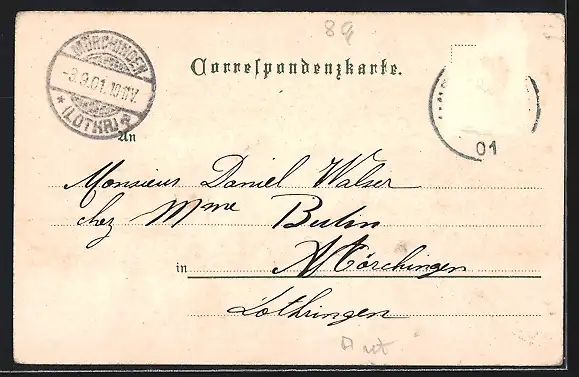 89
Correspondenzkarte.
MÖRCHINGEN
-8.9.01. 10-11V.
* (LOTHR.) *
01
An
Monsieur Daniel Walser
chez Mme Buhn
in Mörchingen
Lothringen